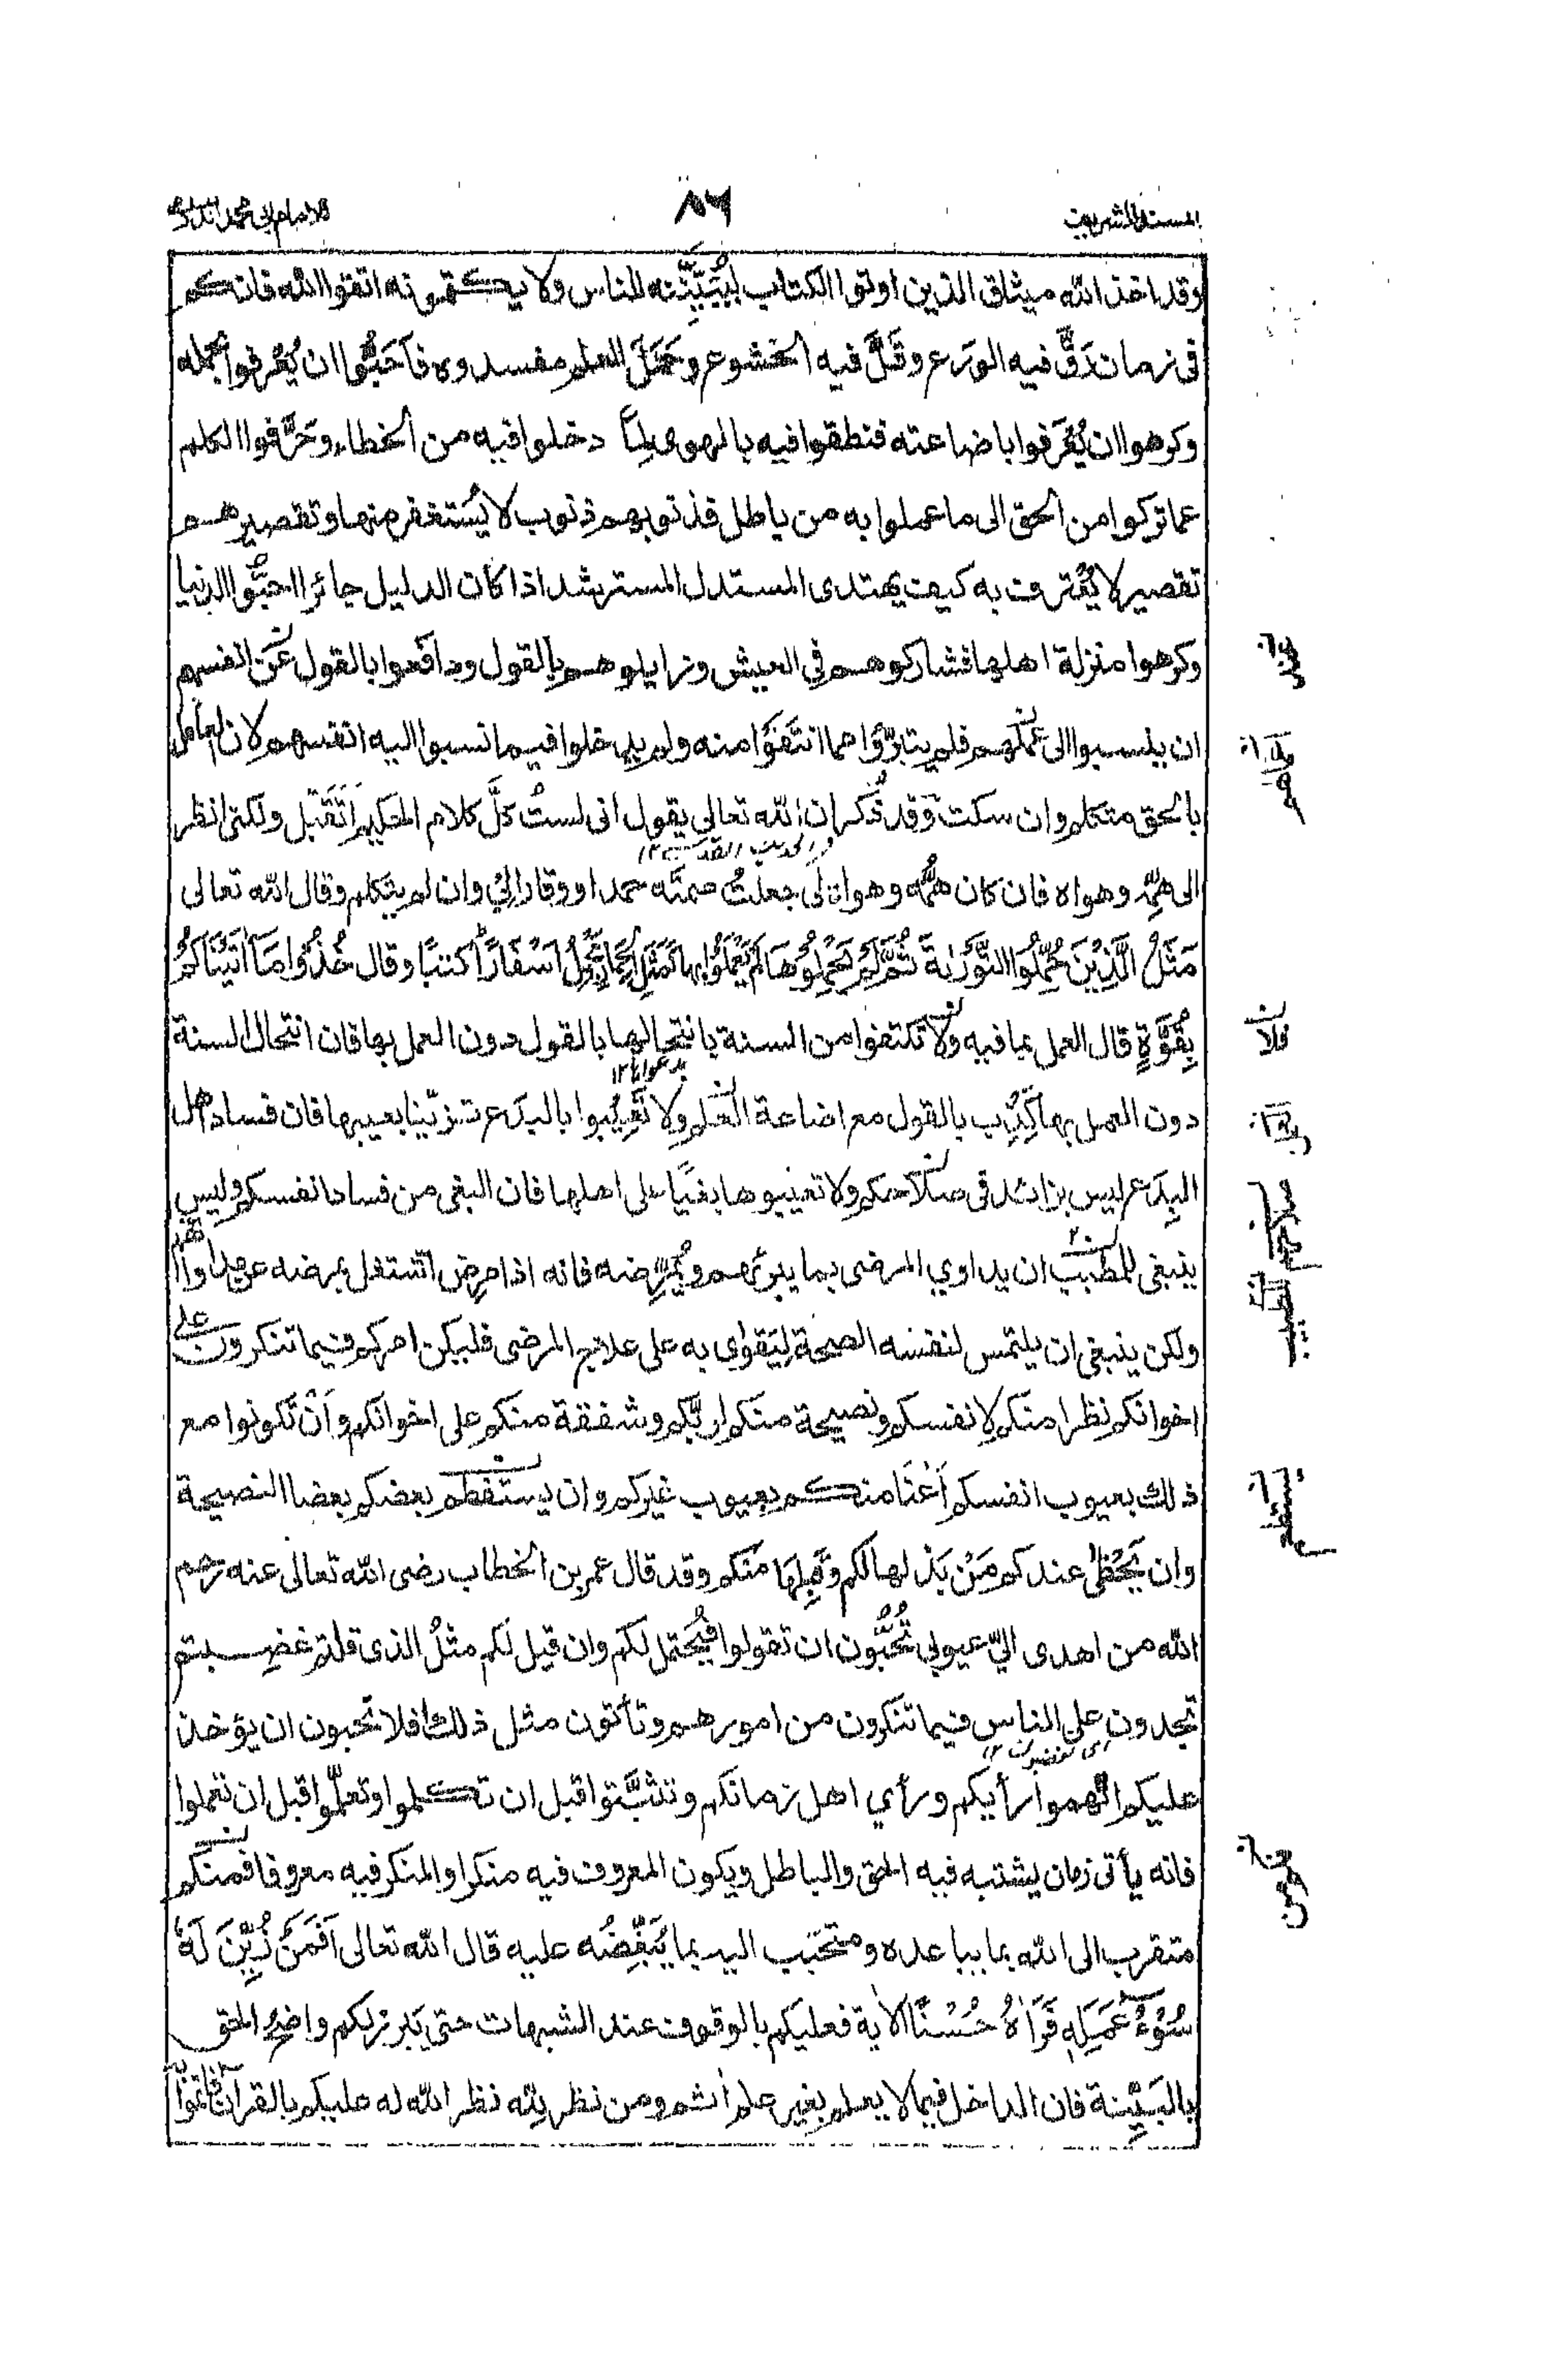 المسند الشريف
٨٦
للامام ابي محمد الدارمي
وقد اخذ الله ميثاق الذين اوتوا الكتاب لَيُبَيِّنُنَّه للناس ولا يكتمونه اتقوا الله فانكم
فى زمان دَقَّ فيه الورع وقَلَّ فيه الخشوع وحَمَلَ العلم مفسدوه فاَحَبُّوا ان يُعْرفوا بحمله
وكرهوا ان يُعْرَفوا باضاعته فنطقوا فيه بالهوى لِمَا دخلوا فيه من الخطاء وحَرَّفوا الكلم
عما تركوا من الحق الى ما عملوا به من باطل فذنوبهم ذنوب لا يُسْتغفر منها وتقصيرهم
تقصير لا يُعْترف به كيف يهتدى المستدل المسترشد اذا كان الدليل حائرا احبُّوا الدنيا
وكرهوا منزلة اهلها فشاركوهم فى العيش وزايلوهم بالقول ودافعوا بالقول عَنْ انفسهم
ان ينسبوا الى عَمَلهم فلم يتبرَّؤا مما انتَفَوْا منه ولم يدخلوا فيما نسبوا اليه انفسهم لان العامل
بالحق متكلم وان سكت وَقد ذُكر ان الله تعالى يقول انى لستُ كلَّ كلام الحكيم اَتَقَبَّل ولكنى انظر
فى الحديث القدسى ١٢
الى هَمِّه وهواه فان كان هَمُّه وهواه لى جعلتُ صمتَه حمدا ووقارا لِىْ وان لم يتكلم وقال الله تعالى
مَثَلُ الَّذِيْنَ حُمِّلُوا التَّوْرٰىةَ ثُمَّ لَمْ يَحْمِلُوْهَا لَمْ يَعْمَلُوْا بِهَا كَمَثَلِ الْحِمَارِ يَحْمِلُ اَسْفَارًا كتبًا وقال خُذُوْا مَآ اٰتَيْنٰاكُمْ
بِقُوَّةٍ قال العمل بما فيه ولَا تكتفوا من السنة بانتحالها بالقول دون العمل بها فان انتحال السنة
دون العمل بها كَذِب بالقول مع اضاعة العلم ولا تَعِيْبوا بالبدَع تزيّنا بعيبها فان فساد اهل
البِدَع ليس بزائد فى صلاحكم ولا تعيبوها بغيًا على اهلها فان البغى من فساد انفسكم وليس
ينبغى للمطبّب ان يداوي المرضى بما يبرئهم ويُمْرِضه فانه اذا مرِض اشتغل بمرضه عن مداواتهم
ولكن ينبغى ان يلتمس لنفسه الصحة لِيَقْوٰى به على علاج المرضى فليكن امركم فيما تنكرون على
اخوانكم نظرا منكم لِانفسكم ونصيحة منكم لِربّكم وشفقة منكم على اخوانكم وأَنْ تكونوا مع
ذلك بعيوب انفسكم أَعْنٰى منكم بعيوب غيركم وان يستفطم بعضكم بعضا النصيحة
وان يَحْظٰى عندكم مَنْ بَذَلها لكم وقَبِلها منكم وقد قال عمر بن الخطاب رضى الله تعالى عنه رحم
الله من اهدى اليّ عيوبى تُحُبُّون ان تقولوا فيُحتمل لكم وان قيل لكم مثلُ الذى قلتم غضبتم
تجدون على الناس فيما تنكرون من امورهم وتأتون مثل ذلك افلا تحبون ان يؤخذ
عليكم اتَّهموا رأيكم ورأي اهل زمانكم وتثبَّتوا قبل ان تكلموا وتعلّموا قبل ان تعملوا
فانه يأتى زمان يشتبه فيه الحق والباطل ويكون المعروف فيه منكرا والمنكر فيه معروفا فمنكم
متقرب الى الله بما يباعده ومتحبّب اليه بما يُبَغِّضُه عليه قال الله تعالى اَفَمَنْ زُيِّنَ لَهٗ
سُوْٓءُ عَمَلِهٖ فَرَاٰهُ حُسْنًا الاٰية فعليكم بالوقوف عند الشبهات حتى يَبرز لكم واضحُ الحق
بالبَيِّنة فان الداخل فيما لا يعلم بغير علم اٰثم ومن نظر لِلّٰه نظر الله له عليكم بالقراٰن فأتمّوا